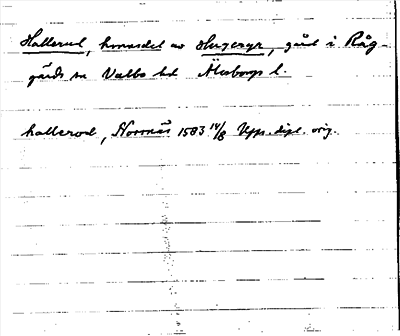 Hallerud, hemmadel av Hugeryr, gård i Råg-
gärds sn Valbo hd Älvsborgs l.
hallerod, Normås 1583 14/8 Upps. dipl. orig.